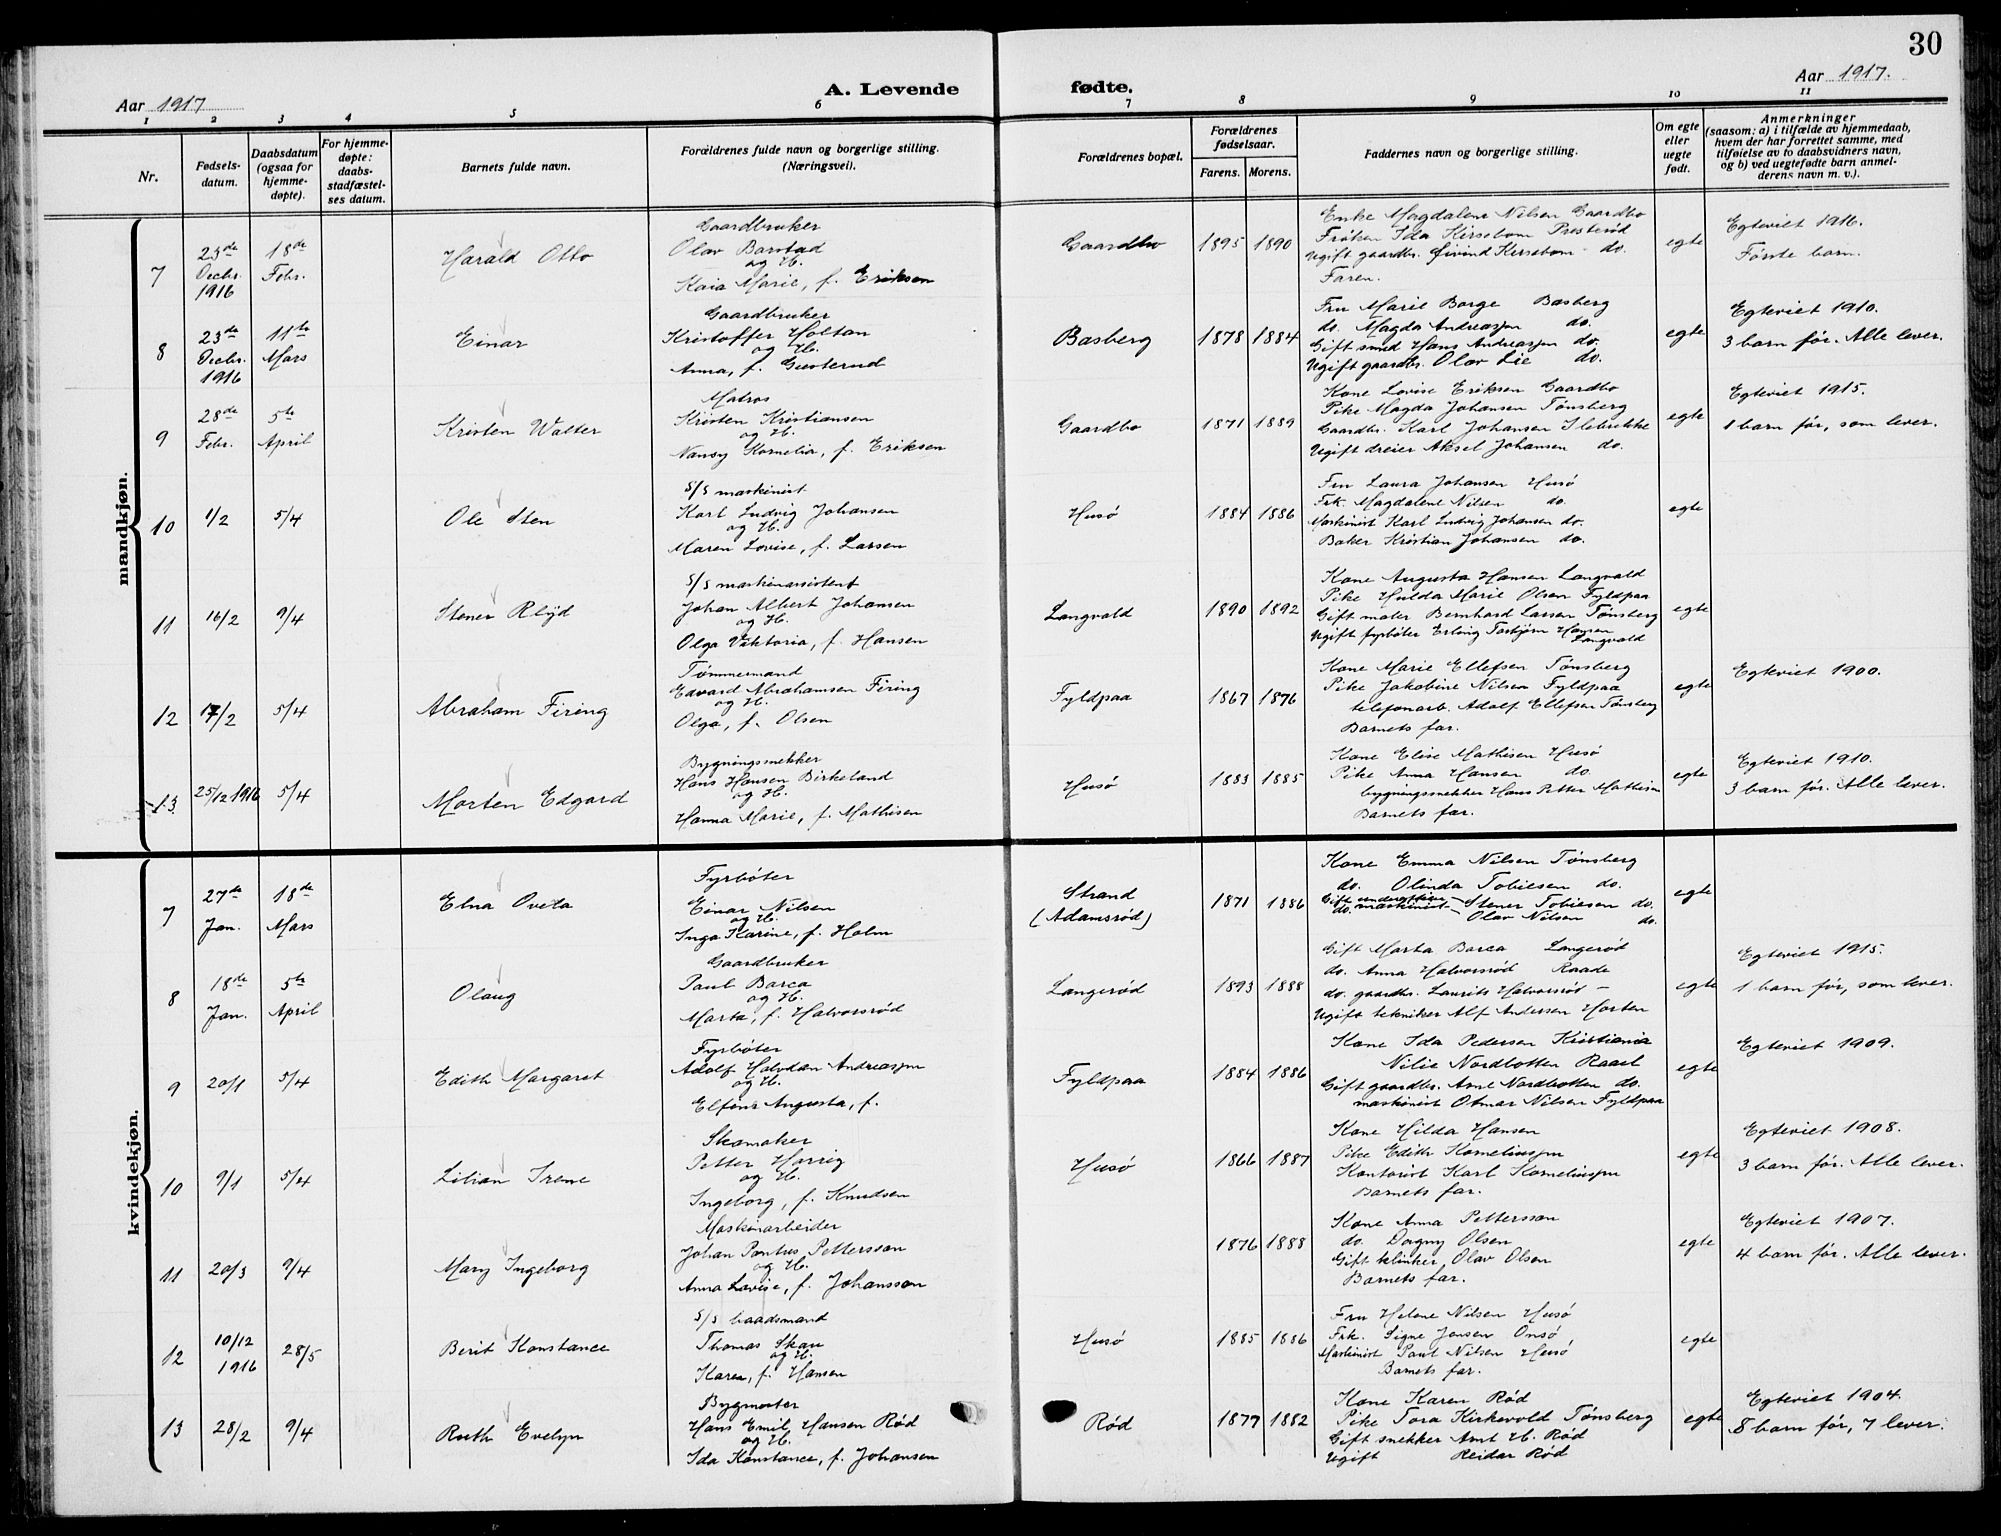 30
Aar 1917 A. Levende fødte. Aar 1917.
1 2 3 4 5 6 7 8 9 10 11
Nr. Fødsels-datum. Daabsdatum (ogsaa for hjemme-døpte). For hjemme-døpte: daabs-stadfæstel-ses datum. Barnets fulde navn. Forældrenes fulde navn og borgerlige stilling. (Næringsvei). Forældrenes bopæl. Forældrenes fødselsaar. Farens. Morens. Faddernes navn og borgerlige stilling. Om egte eller uegte født. Anmerkninger (saasom: a) i tilfælde av hjemmedaab, hvem der har forrettet samme, med tilføielse av to daabsvidners navn, og b) ved uegtefødte barn anmel-derens navn m. v.).
mandkjøn.
Gaardbruker Enke Magdalene Nilsen Gaardbo Egteviet 1916.
23de 18de Olav Barstad Frøken Ida Kirsebom Presterød
7 Decbr. Febr. Harald Otto og H. Gaardbo 1895 1890 Ugift gaardbr. Øivind Kirsebom do. egte Første barn.
1916 Kaia Marie, f. Eriksen Faren.
Gaardbruker Fru Marie Borge Basberg Egteviet 1910.
23de 11te Kristoffer Holtan do. Magda Andreasjen do.
8 Decbr. Mars Einar og H. Basberg 1878 1884 Gift smed Hans Andreasjen do. egte 3 barn før. Alle lever.
1916 Anna, f. Gusterud Ugift gaardbr. Olav Lie do.
Matros Kone Lovise Eriksen Gaardbo Egteviet 1915.
28de 5te Kristen Kristiansen Pike Magda Johansen Tønsberg
9 Febr. April Kristen Walter og H. Gaardbo 1871 1889 Gaardbr. Karl Johansen Ilebrekke egte 1 barn før, som lever.
Nansy Kornelia, f. Eriksen Ugift dreier Aksel Johansen do.
S/S maskinist Fru Laura Johansen Husø
10 1/2 5/4 Ole Sten Karl Ludvig Johansen Husø 1884 1886 Frk. Magdalene Nilsen do. egte
og H. Maskinist Karl Ludvig Johansen do.
Maren Lovise, f. Larsen Baker Kristian Johansen do.
S/S maskinassistent Kone Augusta Hansen Langvald
11 16/2 9/4 Stener Rlijd Johan Albert Johansen Langvald 1890 1892 Pike Hulda Marie Olsen Fyldpaa egte
og H. Gift maler Bernhard Larsen Tønsberg
Olga Viktoria, f. Hansen Ugift fyrbøter Erling Torbjørn Hansen Langvald
Tømmermand Kone Marie Ellefsen Tønsberg Egteviet 1900.
12 17/2 5/4 Abraham Firing Edvard Abrahamsen Firing Fyldpaa 1867 1876 Pike Jakobine Nilsen Fyldpaa egte
og H. telefonarb. Adolf Ellefsen Tønsberg
Olga, f. Olsen Barnets far.
Bygningssnekker Kone Elise Mathisen Husø Egteviet 1910.
13 25/12 1916 5/4 Morten Edgard Hans Hansen Birkeland Husø 1883 1885 Pike Anna Hansen do. egte 3 barn før. Alle lever.
og H. bygningssnekker Hans Petter Mathisen
Hanna Marie, f. Mathisen Barnets far.
kvindekjøn.
Fyrbøter Kone Emma Nilsen Tønsberg
7 27de Jan. 18de Mars Elna Oveta Einar Nilsen Strand (Adamsrød) 1871 1886 do. Olinda Tobiesen do. egte
og H. Gift maskinist Stener Tobiesen do.
Inga Karine, f. Holm do. Olav Nilsen do.
Gaardbruker Gift Marta Barca Langerød Egteviet 1915.
8 18de Jan. 5te April Olaug Paul Barca Langerød 1893 1888 do. Anna Halvorsrød Raade egte 1 barn før, som lever.
og H. do. gaardbr. Laurits Halvorsrød –
Marta, f. Halvorsrød Ugift tekniker Alf Andersen Horten
Fyrbøter Kone Ida Pedersen Kristiania Egteviet 1909.
9 20/1 5/4 Edith Margaret Adolf Halvdan Andreasjen Fyldpaa 1884 1886 Nilie Nordbotten Raael egte
og H. Gift gaardbr. Arne Nordbotten do.
Elfina Augusta, f. maskinist Otmar Nilsen Fyldpaa
Skomaker Kone Hilda Hansen Egteviet 1908.
10 9/1 5/4 Lilian Irene Petter Harrig Husø 1866 1887 Pike Edith Korneliusjen egte 3 barn før. Alle lever.
og H. Kontorist Karl Korneliusjen
Ingeborg, f. Knudsen Barnets far.
Maskinarbeider Kone Anna Pettersson Egteviet 1907.
11 20/3 9/4 Mary Ingeborg Johan Pontus Pettersson 1876 1888 do. Dagny Olsen egte 4 barn før. Alle lever.
og H. Gift klinker Olav Olsen
Anna Lovise, f. Johansson Barnets far.
S/S baadsmand Fru Helene Nilsen Husø
12 10/12 1916 28/5 Berit Konstance Thomas Skau Husø 1885 1886 Frk. Signe Jensen Onsø, egte
og H. Maskinist Paul Nilsen Husø
Karen, f. Hansen Barnets far.
Bygmester Kone Karen Rød Egteviet 1904.
13 28/2 9/4 Ruth Evelyn Hans Emil Hansen Rød Rød 1877 1882 Pike Tora Kirkevold Tønsberg egte 8 barn før, 7 lever.
og H. Gift snekker Arnt H. Rød
Ida Konstance, f. Johansen Ugift Reidar Rød